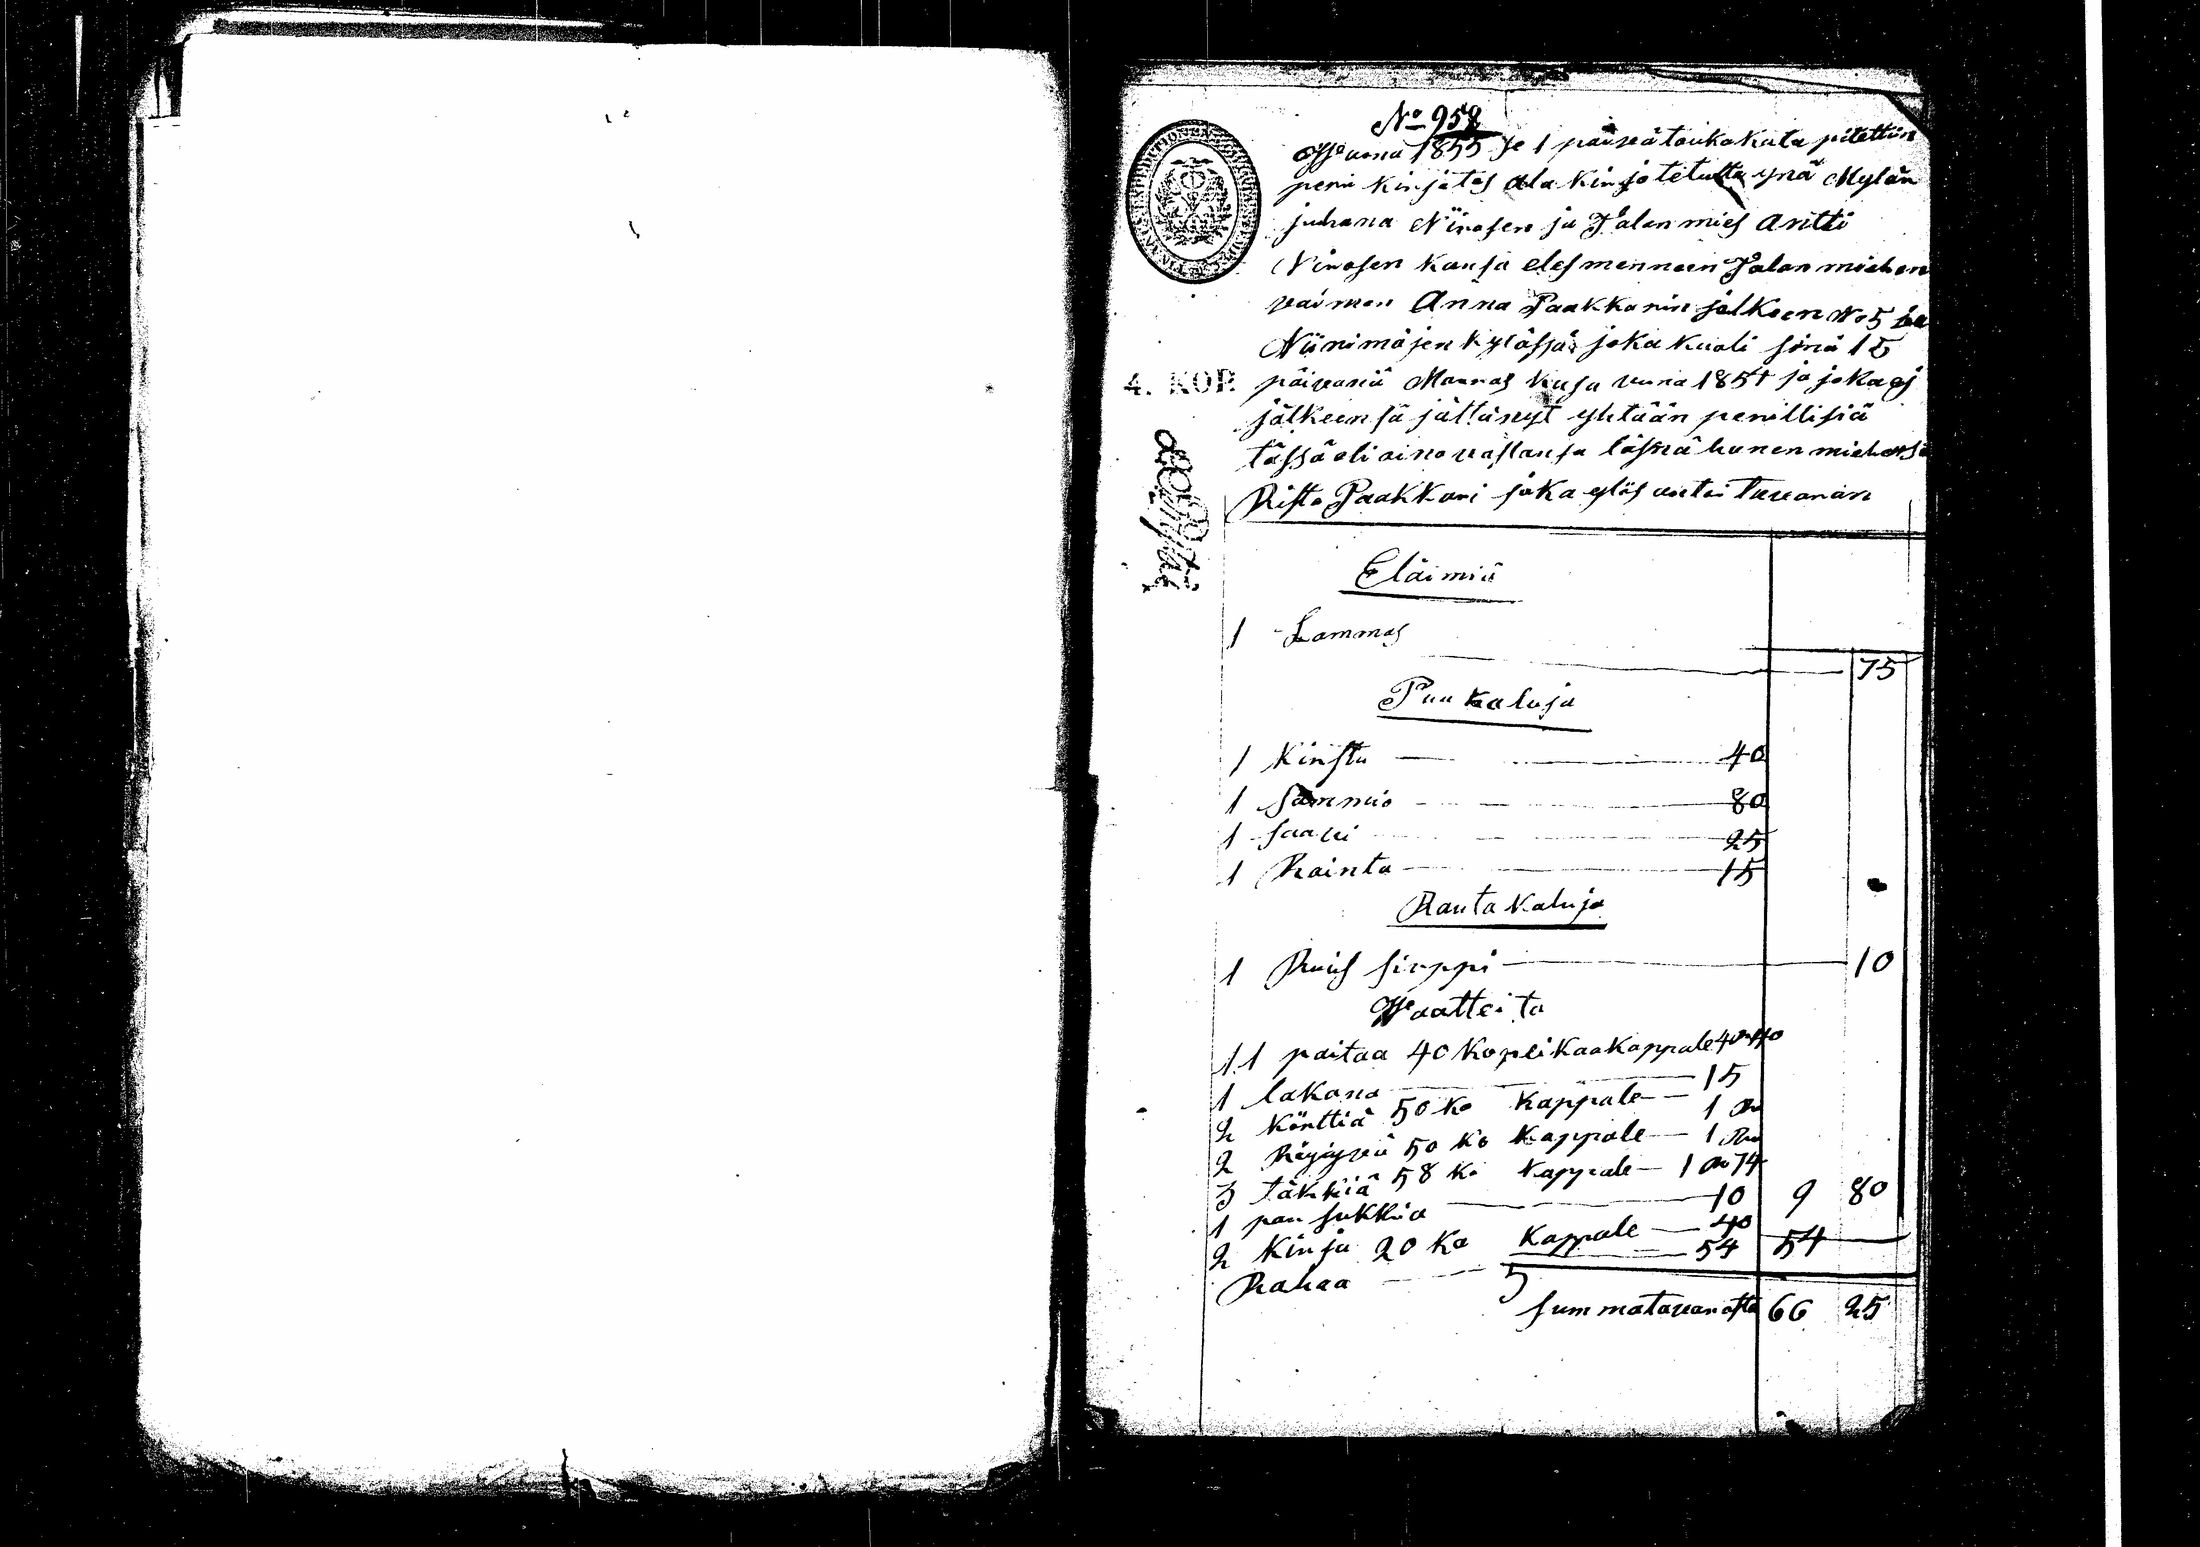 No 958
Wuona 1855 Je 1 päiveä toukokuta pitettiin
peru kirjotos ala kirjotetulta ynä Mylän
juhana Niirosen ja Talan mies Antti
Nirosen kansa eles menneen Talon miehen
vaimon Anna Paakkarin jälkeen No 5
Niinimäjen kylässä joka kuoli sinä 15
4. KOP. päivenä Marras kusa vuna 1854 ja joka ej
jälkeensä jättänyt yhtään perillisiä
tässä oli aino vastansa läsnä hänen miehensä
Risto Paakkari joka ylös antoi tavaran
Eläimiä
1 Lammas 75
Puu kaluja
1 kirstu 40
1 sammio 80
1 saavi 25
1 Rainta 15
Rauta kaluja
1 Ruis sirppi 10
Waatteita
11 paitaa 40 kopeikaa kappale 4 Ru 40
1 lakana 15
2 könttiä 50 ko kappale 1 Ru
2 Röijyveä 50 ko kappale 1 Ru
3 täkkiä 58 ko kappale 1 Ru 74
1 pari sukkia 10 9 80
2 kirja 20 ko kappale 40
Rahaa 54 54
summa tavarasta 66 25